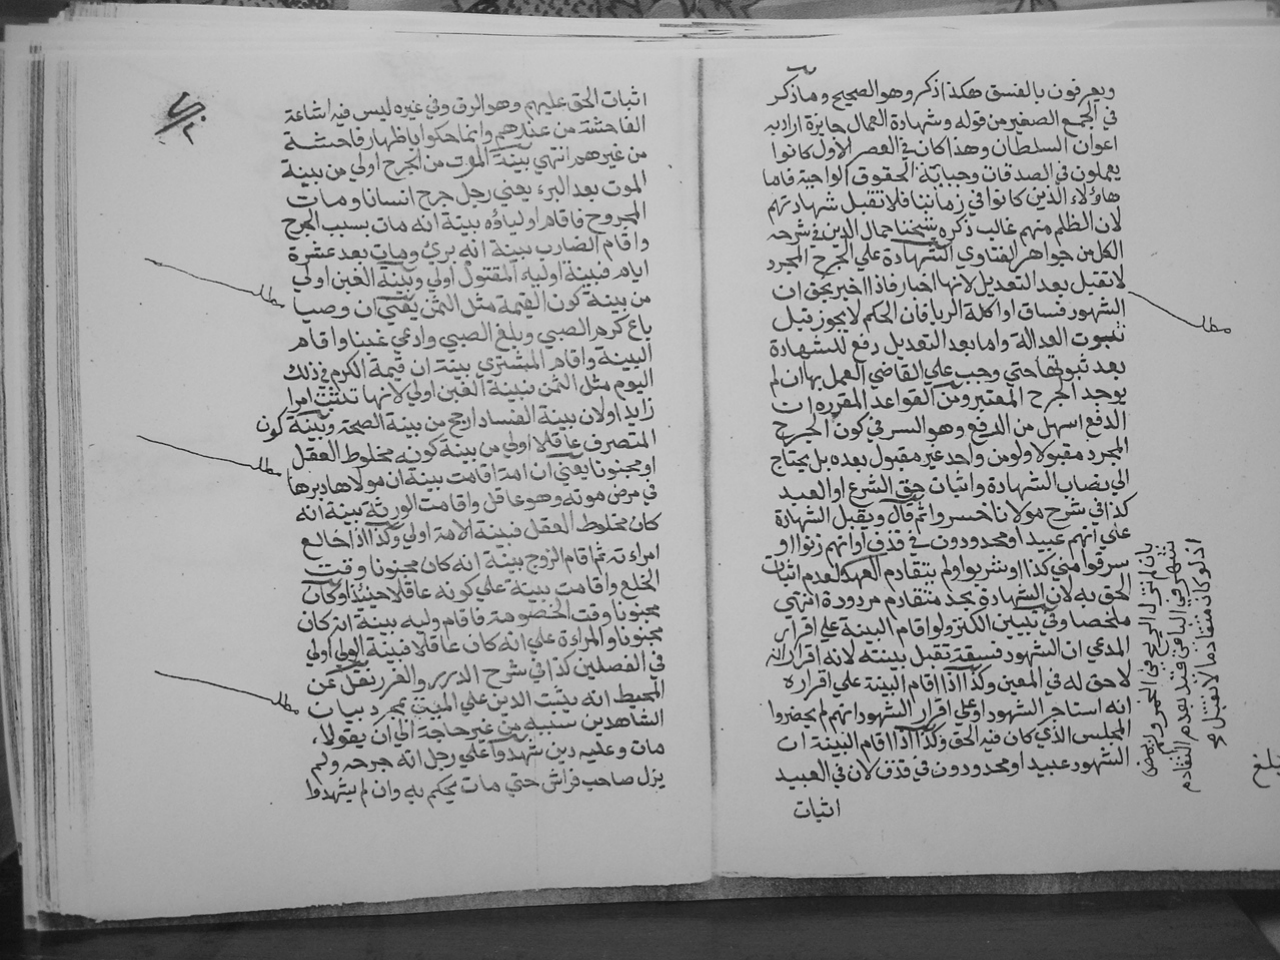 ويعرفون بالفسق هكذا ذكر وهو الصحيح وما ذكر
في الجمع الصغير من قوله وشهادة العمال جايزة اراد به
اعوان السلطان وهذا كان في العصر الاول كانوا
يعملون في الصدقات وجباية الحقوق الواجبة فاما
هاؤلاء الذين كانوا في زماننا فلا تقبل شهادتهم
لان الظلم منهم غالب ذكره شيخنا جمال الدين في شرحه
الكل من جواهر الفتاوي الشهادة علي الجرح المجرد
لا تقبل بعد التعديل لانها اخبار فاذا اخبر مخبر ان
الشهود فساق او اكلة الربا فان الحكم لا يجوز قبل
ثبوت العدالة واما بعد التعديل رفع للشهادة
بعد ثبوتها حتي وجب علي القاضي العمل بها ان لم
يوجد الجرح المعتبر ومن القواعد المقررة ان
الدفع اسهل من الرفع وهو السر في كون الجرح
المجرد مقبولا ولو من واحد غير مقبول بعده بل يحتاج
الي نصاب الشهادة واثبات حق الشرع او العبد
كذا في شرح مولانا خسرو اثم قال ويقبل الشهادة
علي انهم عبيد او محدودون في قذف او انهم زنوا او
سرقوا مني كذا او شربوا ولم يتقادم العهد لعدم اثبات
الحق به لان الشهادة بحد متقادم مردودة انتهي
ملخصا وفي تبيين الكنز ولو اقام البينة علي اقرار
المدعي ان الشهود فسقة تقبل بينته لانه اقرار انه
لا حق له في المعين وكذا اذا اقام البينة علي اقراره
انه استاجر الشهود او علي اقرار الشهود انهم لم يحضروا
المجلس الذي كان فيه الحق وكذا اذا اقام البينة ان
الشهود عبيد او محدودون في قذف لان في العبيد
اثبات
بان لم يزل الريح في الخمر ولم يمض
شهر في الباقي قيد بعدم التقادم
اذ لو كان متقادما لا تقبل
مطلب
بلغ
اثبات الحق عليهم وهو الرق وفي غيره ليس فيه اشاعة
الفاحشة من عندهم وانما حكوا باظهار فاحشة
من غيرهم انتهي بينة الموت من الجرح اولي من بينة
الموت بعد البرء يعني رجل جرح انسانا ومات
المجروح فاقام اولياؤه بينة انه مات بسبب الجرح
واقام الضارب بينة انه برئ ومات بعد عشرة
ايام فبينة اولياء المقتول اولي وبينة الغبن اولي
من بينة كون القيمة مثل الثمن يعني ان وصيا
باع كرم الصبي وبلغ الصبي وادعي غبنا واقام
البينة واقام المشتري بينة ان قيمة الكرم في ذلك
اليوم مثل الثمن فبينة الغبن اولي لانها تثبت امرا
زايد اولان بينة الفساد ارجح من بينة الصحة وبينة كون
المتصرف عاقلا اولي من بينة كونه مخلوط العقل
او مجنونا يعني ان امة اقامت بينة ان مولاها دبرها
في مرض موته وهو عاقل واقامت الورثة بينة انه
كان مخلوط العقل فبينة الامة اولي وكذا اذا خالع
امراءته ثم اقام الزوج بينة انه كان مجنونا وقت
الخلع واقامت بينة علي كونه عاقلا حينئذ او كان
مجنونا وقت الخصومة فاقام وليه بينة انه كان
مجنونا والمراءة علي انه كان عاقلا فبينة المولي اولي
في الفصلين كذا في شرح الدرر والغرر نقل عن
المحيط انه يثبت الدين علي الميت بمجرد بيان
الشاهدين سببه من غير حاجة الي ان يقولا
مات وعليه دين شهدوا علي رجل انه جرحه ولم
يزل صاحب فراش حتي مات يحكم به وان لم يشهدوا
مطلب
مطلب
مطلب